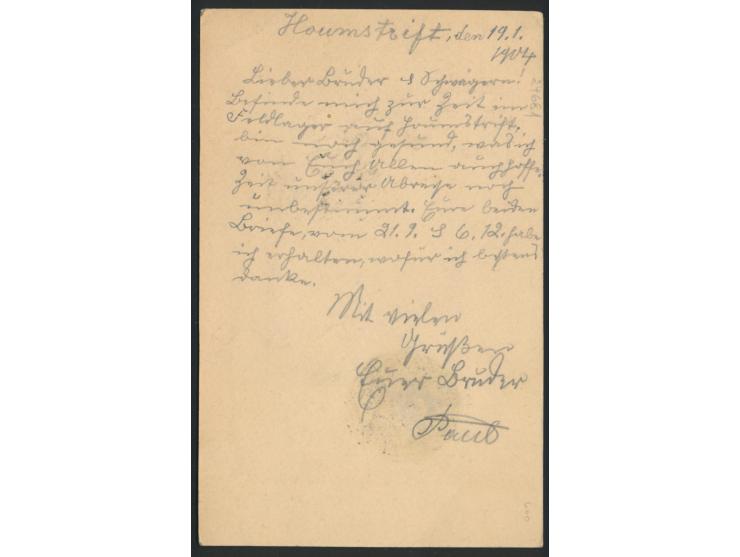 Houmstrift, den 19.1.
1904
Lieber Bruder & Schwägern!
Befinde mich zur Zeit im
Feldlager auf Houmstrift,
bin noch gesund, was ich
von Euch Allen auch hoffe.
Zeit unserer Abreise noch
unbestimmt. Eure beiden
Briefe, vom 21.9. & 6.12. habe
ich erhalten, wofür ich bestens
danke.
Mit vielen
Grüßen
Euer Bruder
Paul